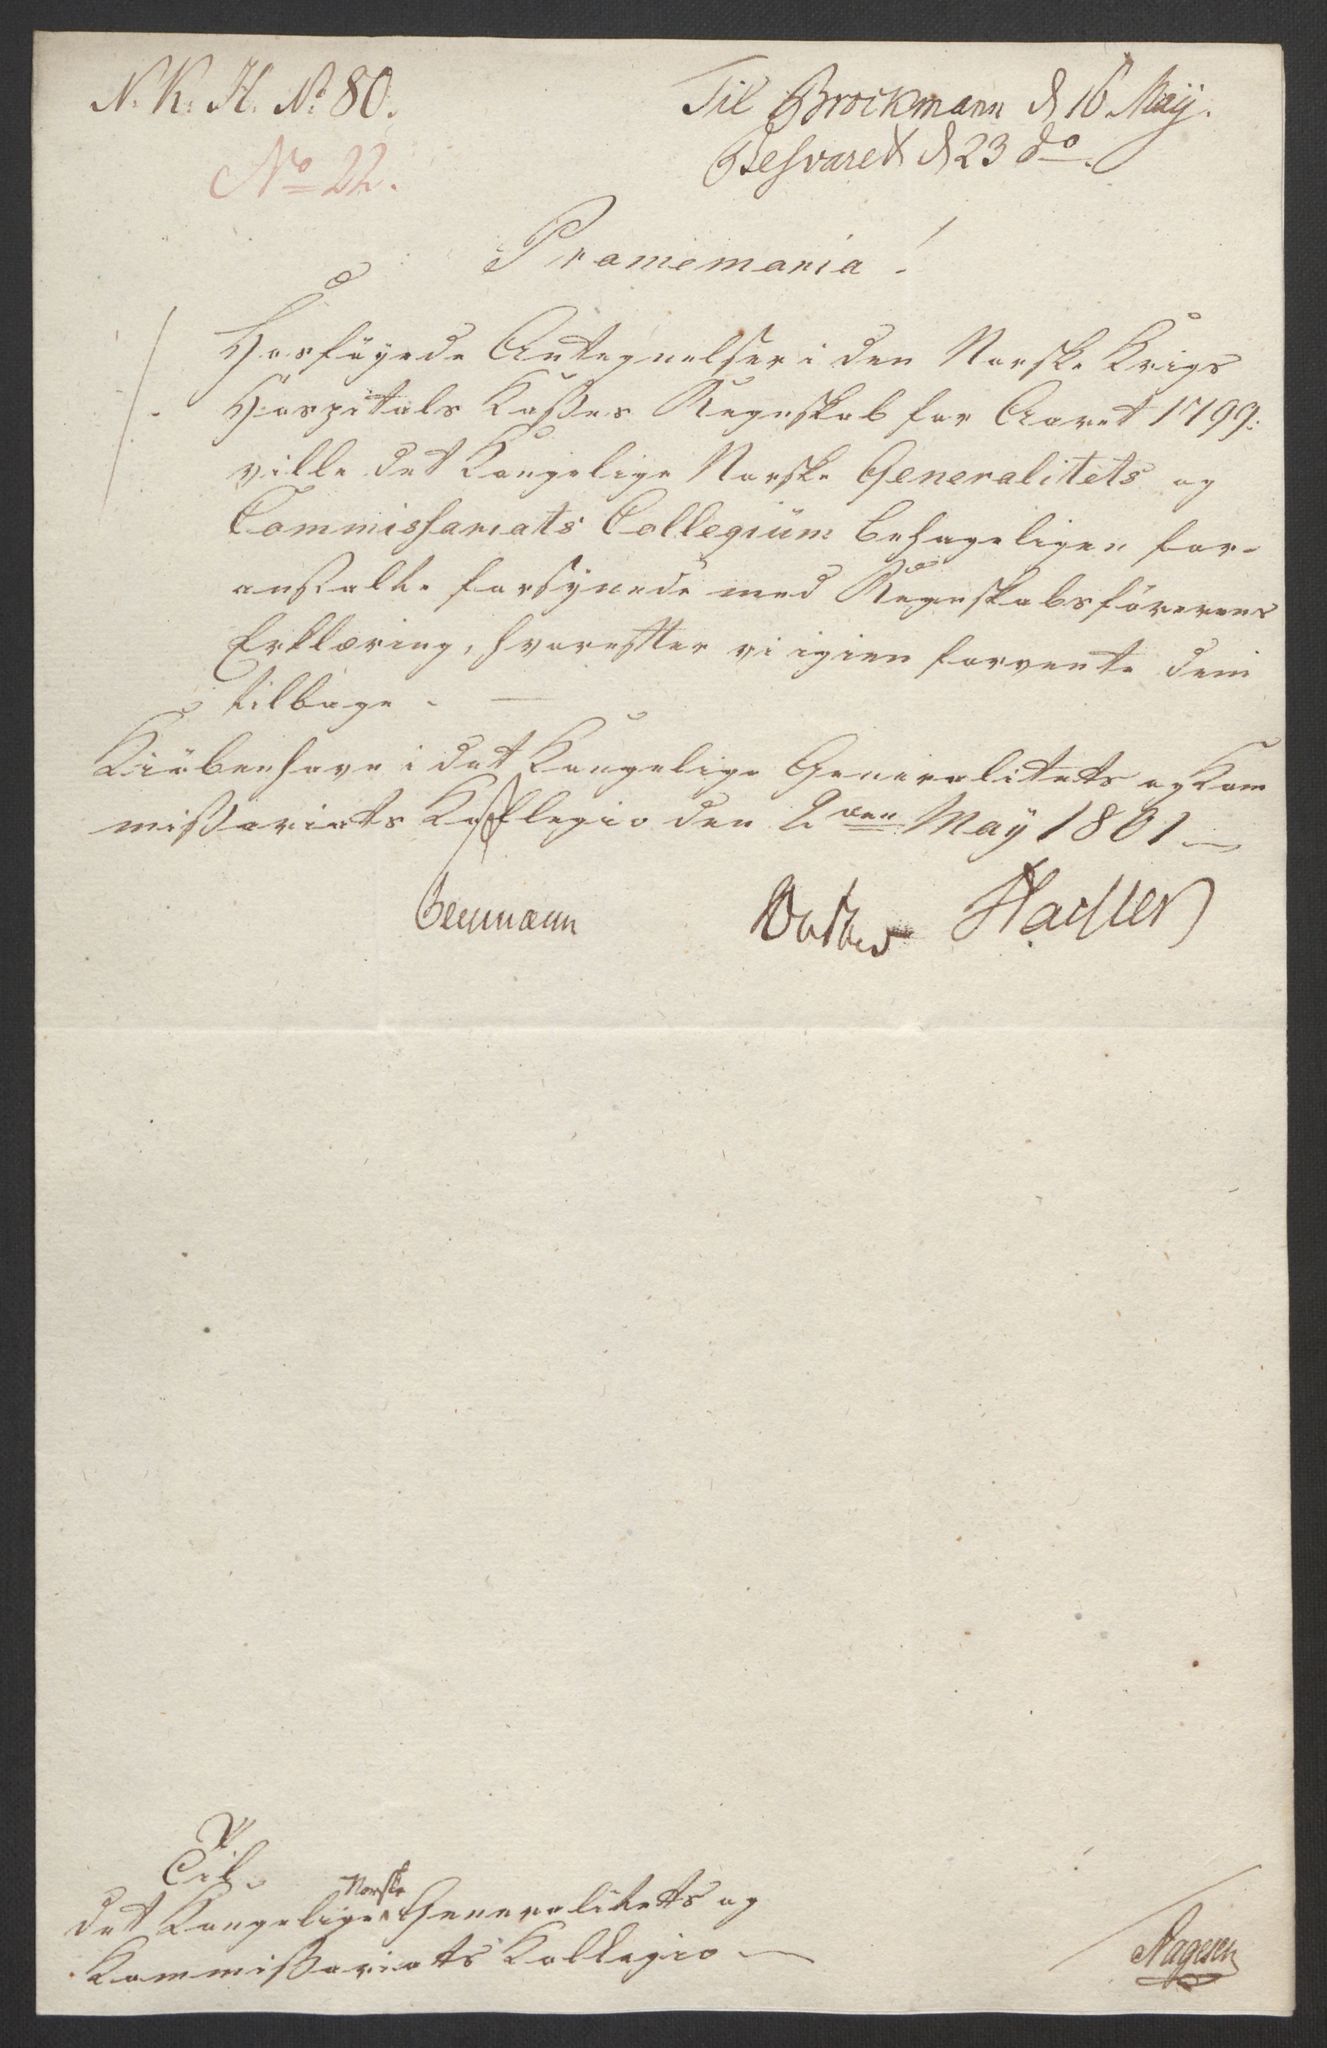 N: K: H. No 80.
Til Brockmann d 16 Maij.
Besvaret d 23 do
No 22.
Promemoria!
Hosföyede Antegnelser i den Norske Krigs
Hospitals Kasses Regnskab for Aaret 1799.
ville det Kongelige Norske Generalitets og
Commissariats Collegium behageligen for-
anstalte forsynede med Regnskabsförerens
Erklæring, hvorefter vi igien forvente dem
tilbage.
Kiöbenhavn i det Kongelige Generalitets og Kom
missariats Kollegio den 2den May 1801
Til
det Kongelige Norske Generalitets og
Kommissariats Kollegio